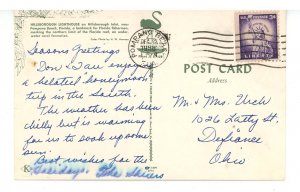 HILLSBOROUGH LIGHTHOUSE on Hillsborough Inlet, near
Pompano Beach, Florida, a landmark for Florida fishermen,
marking the northern limit of the Florida reef, an under-
water coral formation.
POMPANO BEACH
FLA.
U.S. POSTAGE 3¢
LIBERTY
POST CARD
Address
Seasons Greetings
Don & I are enjoying
a belated honeymoon
trip in the South.
The weather has been
chilly but is warming
for us to soak up some
sun.
Best wishes for the
Holidays. The
Mr. & Mrs.
1026 Latty St.
Defiance
Ohio